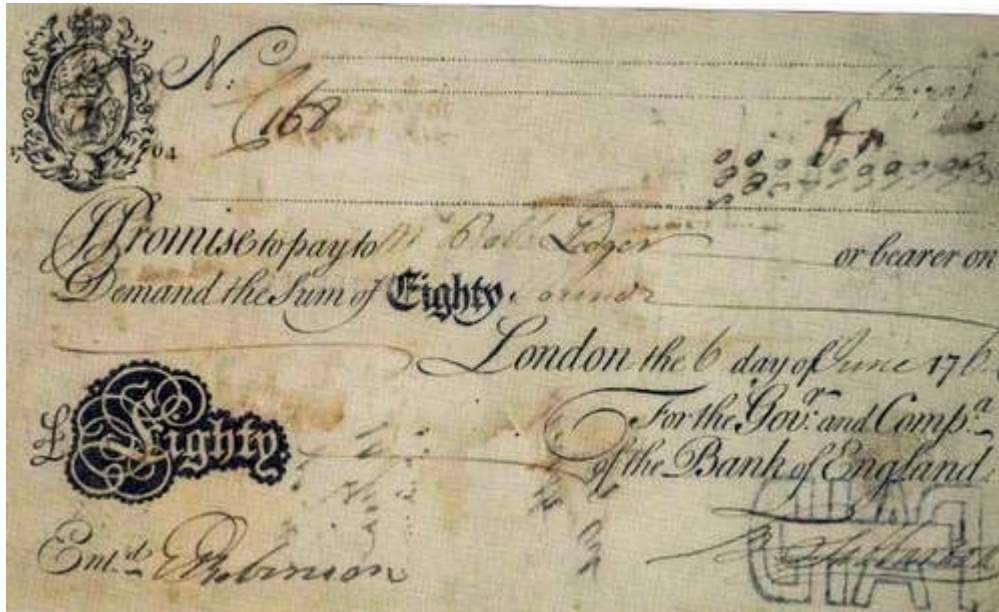 No
168
I Promise to pay to Mr Robt Ledger or bearer on
Demand the Sum of Eighty Pounds
London the 6 day of June 176
For the Govr. and Compa.
of the Bank of England
£ Eighty
Entd. Robinson
PAID